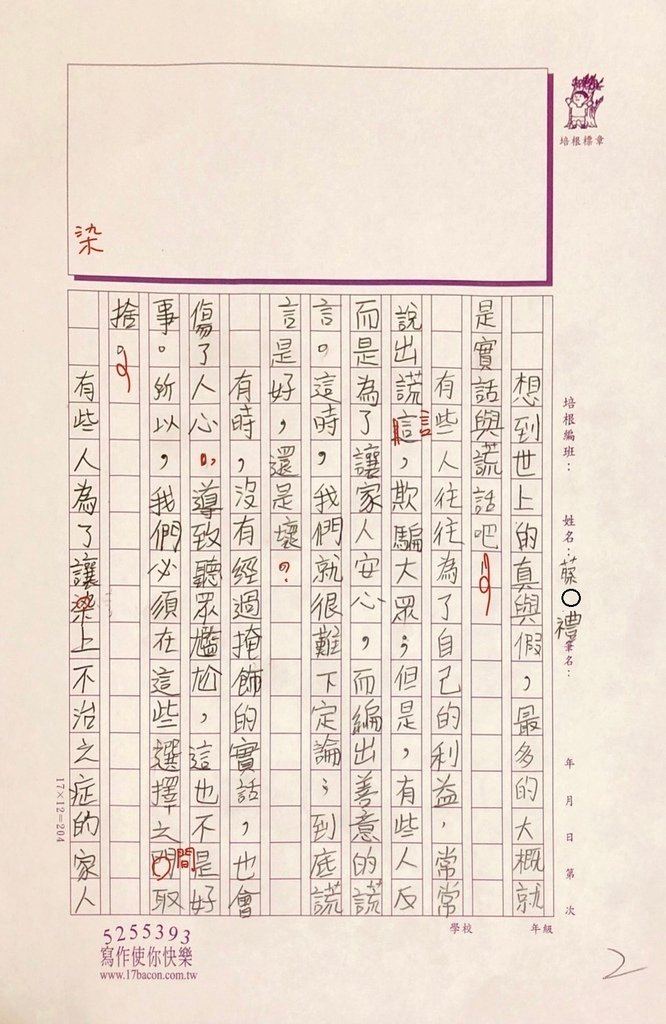 培根標章
染
培根編班：
姓名：蔡○禮
筆名：
年 月 日 第 次
學校
年級
想到世上的真與假，最多的大概就
是實話與謊話吧！
有些人往往為了自己的利益，常常
說出謊言，欺騙大眾；但是，有些人反
而是為了讓家人安心，而編出善意的謊
言。這時，我們就很難下定論；到底謊
言是好，還是壞？
有時，沒有經過掩飾的實話，也會
傷了人心，導致聽眾尷尬，這也不是好
事。所以，我們必須在這些選擇之間取
捨。
有些人為了讓染上不治之症的家人
17×12=204
5255393
寫作使你快樂
www.17bacon.com.tw
2